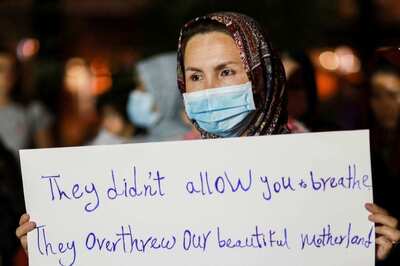 They didn't allow you to breathe
They Overthrew Our beautiful Motherland